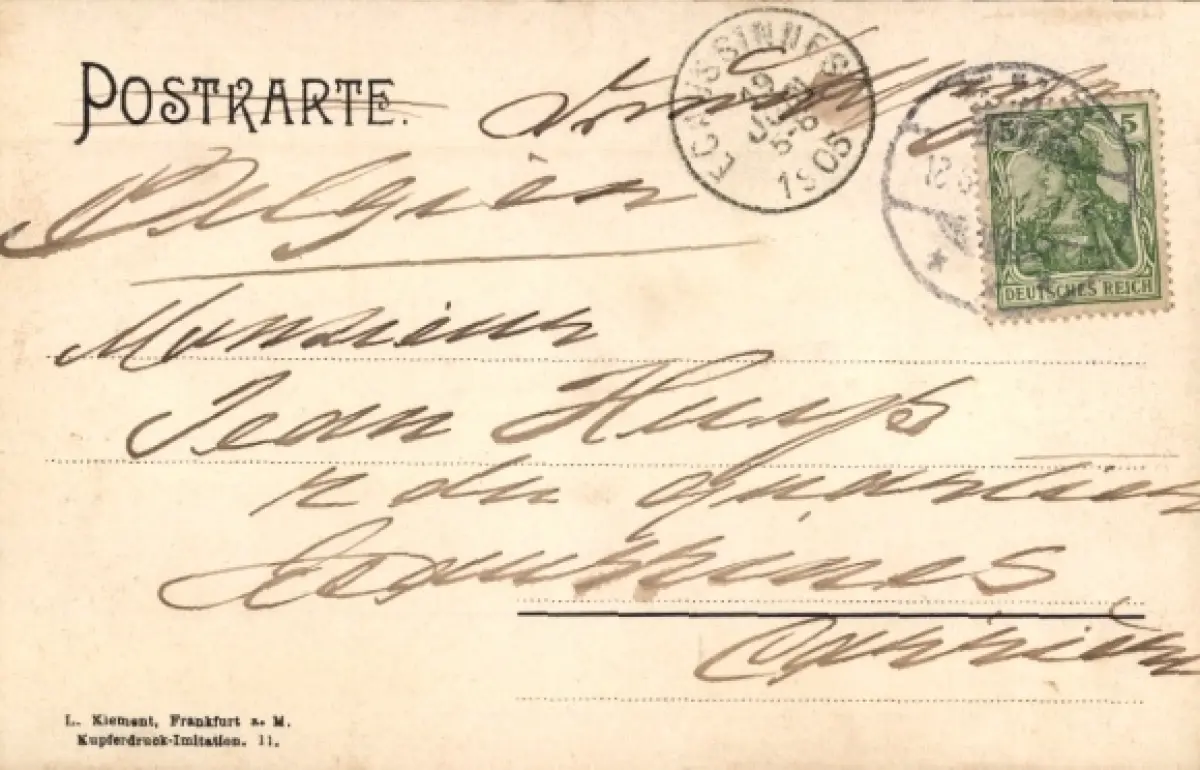 POSTKARTE.
ECAUSSINNES
19
JUIN
5-6
1905
5 5
12
DEUTSCHES REICH
Belgien
Monsieur
Jean Huys
r du Quartier
Ecaussines
Carrières
L. Klement, Frankfurt a. M.
Kupferdruck-Imitation. 11.